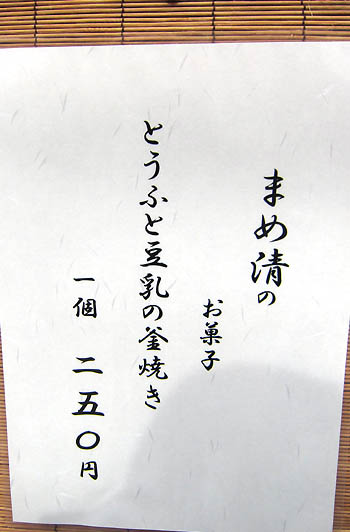 まめ清の
お菓子
とうふと豆乳の釜焼き
一個 二五〇円